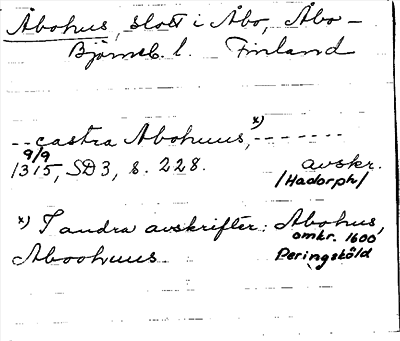 Åbohus, slott i Åbo, Åbo-
Björneb. l. Finland
--castra Abohuus,x)-------
9/9
1315, SD 3, s. 228. avskr.
/Hadorph/
x) I andra avskrifter: Abohus,
omkr. 1600
Aboohuus Peringsköld